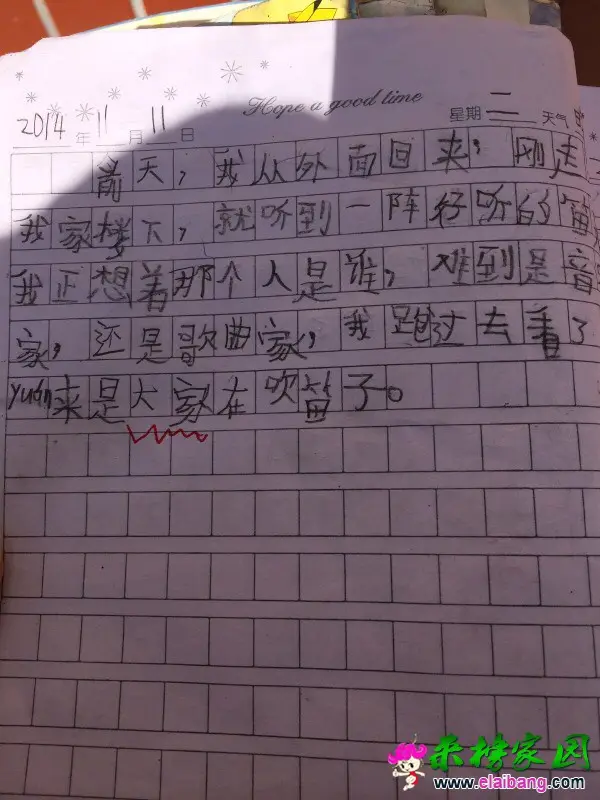 Hope a good time
2014年11月11日 星期二 天气
前天，我从外面回来，刚走
我家楼下，就听到一阵好听的笛
我正想着那个人是谁，难到是音
家，还是歌曲家，我跑过去看了
yuán来是大家在吹笛子。
来榜家园
www.elaibang.com